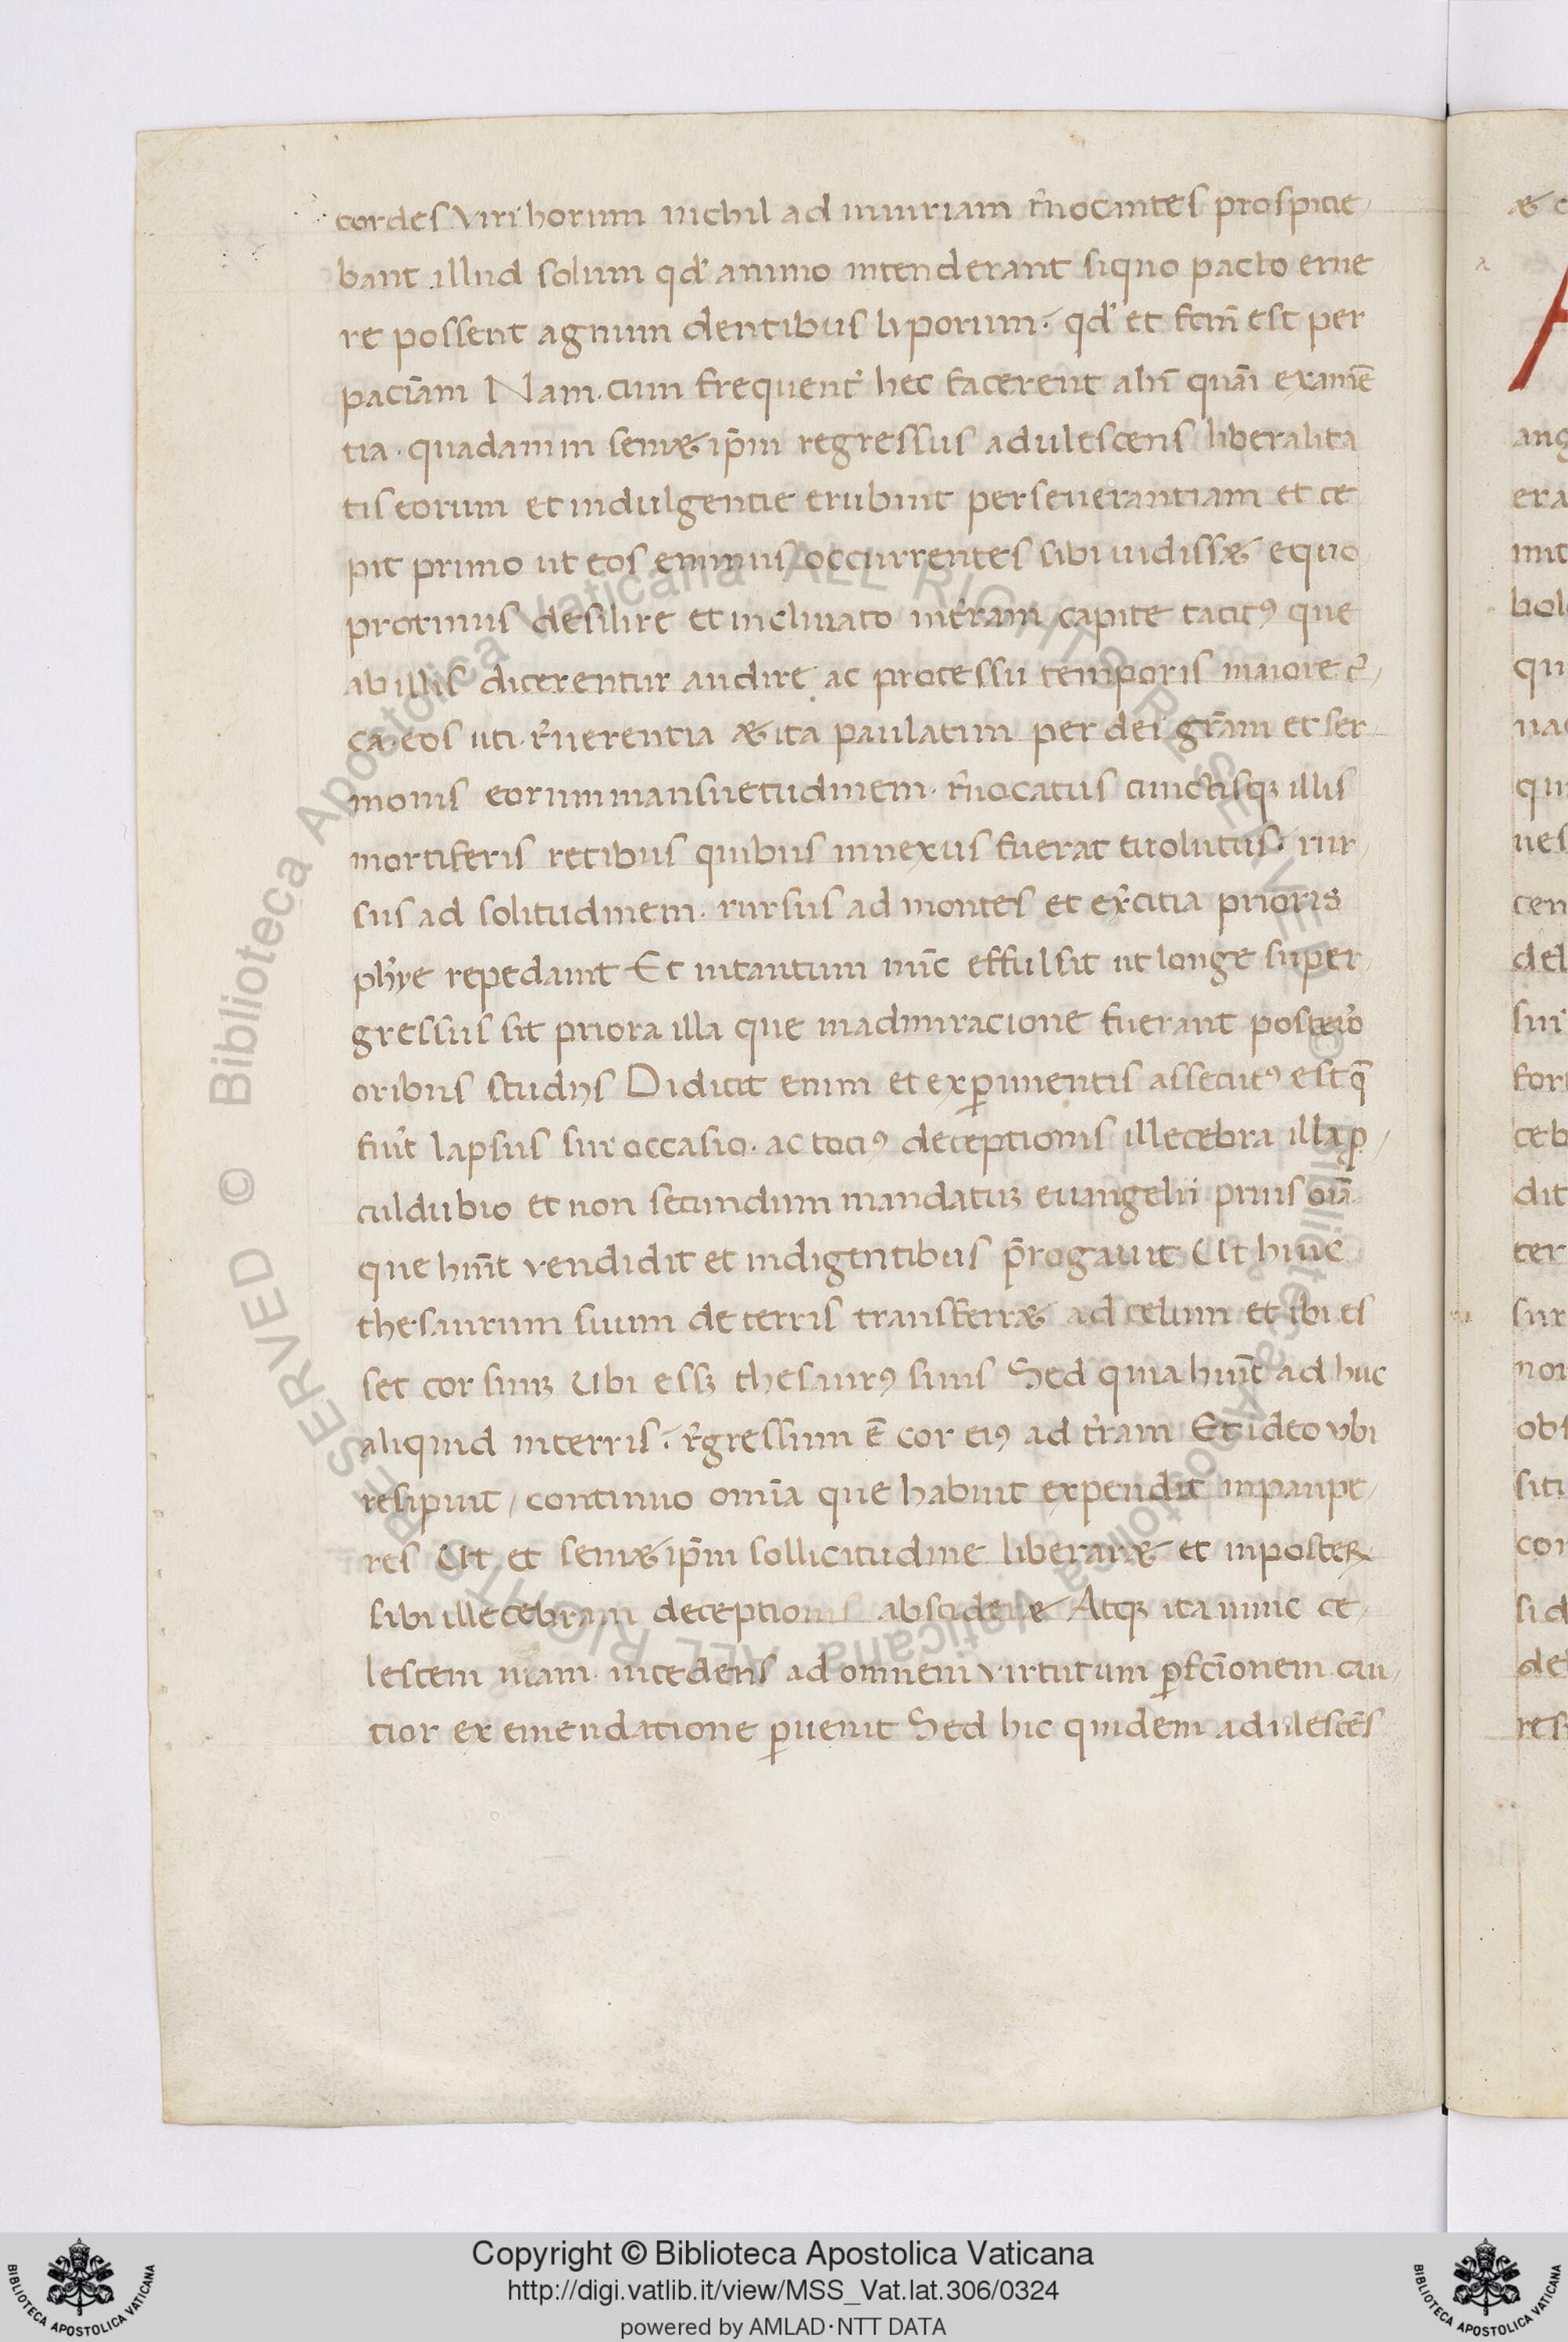 cordes viri horum nichil ad iniuriam r̄uocantes prospicie
bant illud solum qd̛ animo intenderant siquo pacto erue
re possent agnum dentibus luporum. qd̛ et fcm̄ est per
paciām Nam cum frequent̛ hec facerent
tia. quadam in semæ ip̄m regressus adulescens liberalita
tis eorum et indulgentie erubuit perseuerantiam et ce
pit primo ut eos eminus occurrentes sibi uidissæ equo
protinus desilire et inclinato int̛ram capite tacitꝰ que
ab illis dicerentur audire ac processu temporis maiore c̛
ca eos uti r̛uerentia æ ita paulatim per dei grām et ser
monis eorum mansuetudinem. r̛uocatus cunctisqꝫ illis
mortiferis retibus quibus innexus fuerat euolutus. rur
sus ad solitudinem. rursus ad montes et ex̛citia prioris
phỹe repedauit Et intantum nūc effulsit ut longe super
gressus sit priora illa que inadmiracione fuerant
oribus studijs Didicit enim et exꝑimentis assecutꝰ est q̄
fiũt lapsus sui occasio. ac tociꝰ deceptionis illecebra illa ꝓ
culdubio et non secundum mandatuꝫ euuangelii prius oīa
que hūit vendidit et indigentibus p̄rogauit Ut hinc
thesaurum suum de terris transferræ ad celum et ibi es
set cor suuꝫ Ubi essꝫ thesaurꝰ suus Sed quia hūit ad huc
aliquid interris. r̛gressum ē cor eiꝰ ad t̛ram Et ideo vbi
resipuit, continuo omīa que habuit expendit inpaupe
res Ut et semæ ip̄m sollicitudine liberaræ et inposteꝝ
sibi illecebram deceptionis abscideræ Atqꝫ ita nunc ce
lestem uiam incedens ad omnem virtutum ꝑfcīonem cau
tior ex emendatione ꝑuenit Sed hic quidem adulescēs
Copyright © Biblioteca Apostolica Vaticana
http://digi.vatlib.it/view/MSS_Vat.lat.306/0324
powered by AMLAD·NTT DATA